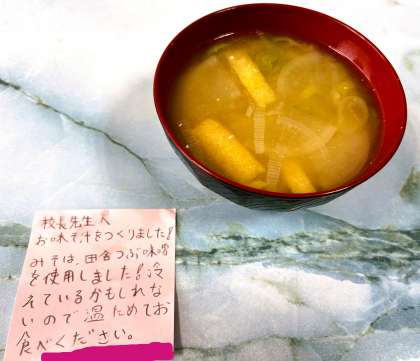 校長先生へ
お味そ汁をつくりました!
みそは、田舎つぶ味噌
を使用しました!冷
えているかもしれな
いので温ためてお
食べください。